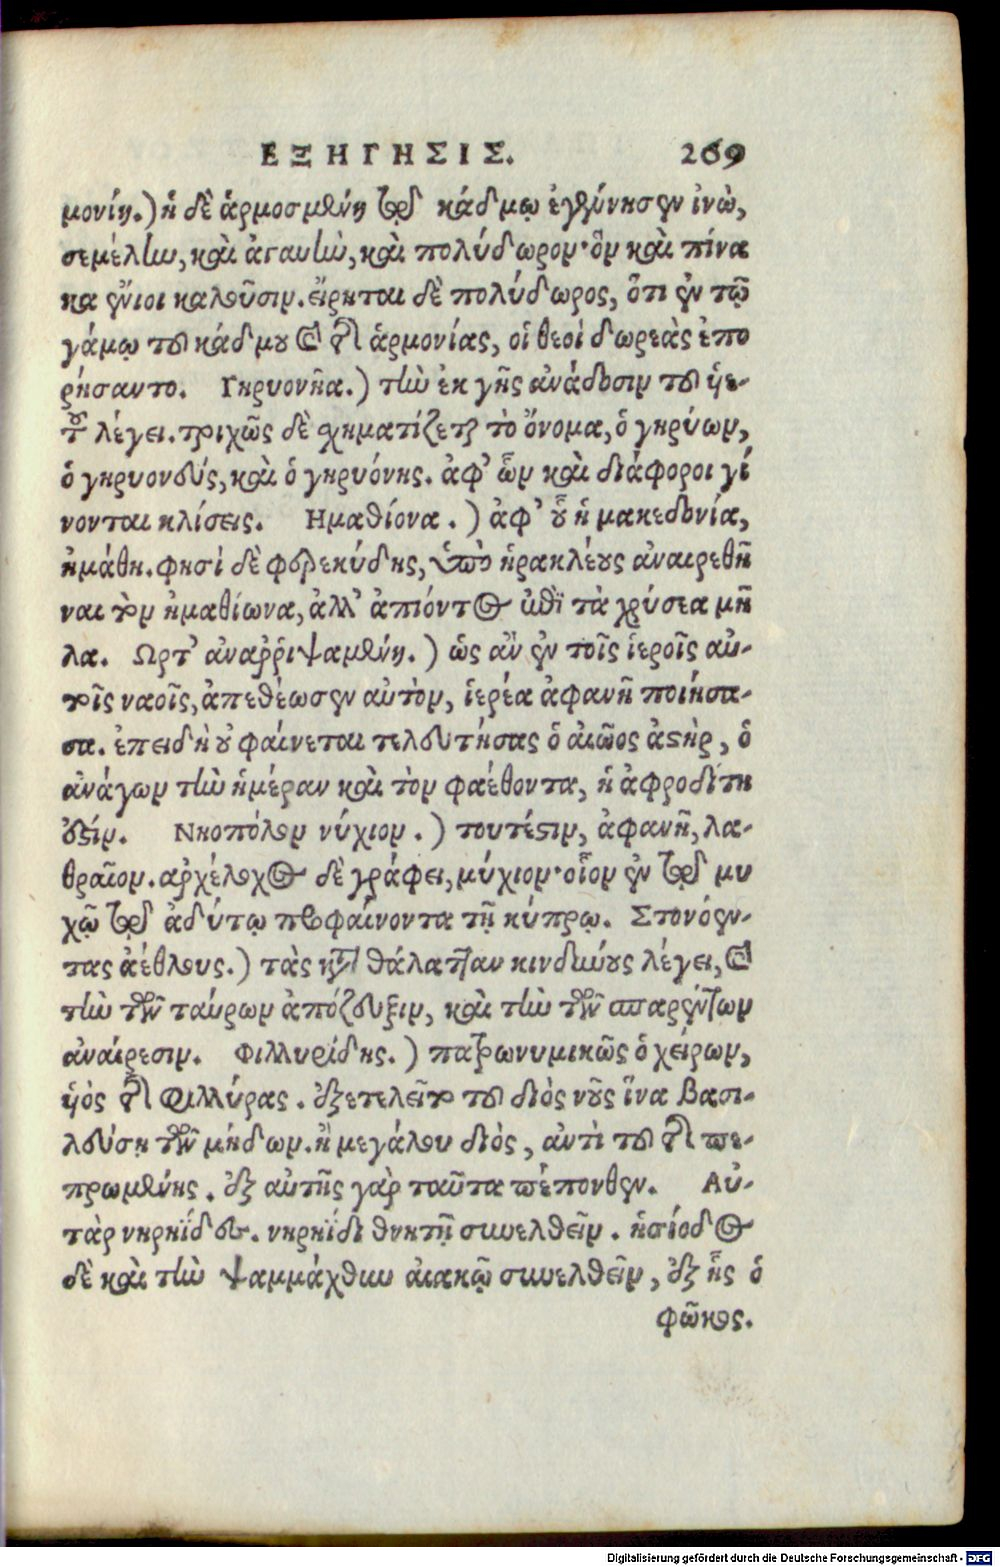 ΕΞΗΓΗΣΙΣ. 269
μονίη.) ἡ δὲ ἁρμοσμένη τῷ κάδμῳ ἐγέννησεν ἰνὼ,
σεμέλην, καὶ ἀγαυὴν, καὶ πολύδωρον· ὃν καὶ πίνα
κα ἔνιοι καλοῦσιν. εἴρηται δὲ πολύδωρος, ὅτι ἐν τῷ
γάμῳ τοῦ κάδμου καὶ τῆς ἁρμονίας, οἱ θεοὶ δωρεὰς ἐπο
ρήσαντο. Γηρυονῆα.) τὴν ἐκ γῆς ἀνάδοσιν τοῦ ἠε-
τ λέγει. τριχῶς δὲ σχηματίζεται τὸ ὄνομα, ὁ γηρύων,
ὁ γηρυονεύς, καὶ ὁ γηρυόνης. ἀφ’ ὧν καὶ διάφοροι γί
νονται κλίσεις. Ημαθίονα.) ἀφ’ οὗ ἡ μακεδονία,
ἠμάθη. φησὶ δὲ φερεκύδης, ὑπὸ ἡρακλέους ἀναιρεθῆ
ναι τὸν ἠμαθίωνα, ἀλλ’ ἀπιόντος ἐπὶ τὰ χρύσεα μῆ
λα. Ωρτ’ ἀναῤῥιψαμένη.) ὡς ἂν ἐν τοῖς ἱεροῖς αὐ-
τοῖς ναοῖς, ἀπεθέωσεν αὐτὸν, ἱερέα ἀφανῆ ποιήσα-
σα. ἐπειδὴ οὐ φαίνεται τελευτήσας ὁ αἰῶος ἀστὴρ, ὁ
ἀνάγων τὴν ἡμέραν καὶ τὸν φαέθοντα, ἡ ἀφροδίτη
ἐστίν. Νηοπόλον νύχιον.) τουτέστιν, ἀφανῆ, λα-
θραῖον. ἀρχέλοχος δὲ γράφει, μύχιον· οἷον ἐν τῷ μυ
χῷ τῷ ἀδύτῳ προφαίνοντα τῇ κύπρῳ. Στονόεν-
τας ἀέθλους.) τὰς κατὰ θάλατταν κινδύνους λέγει, καὶ
τὴν τῶν ταύρων ἀπόζευξιν, καὶ τὴν τῶν σπαρέντων
ἀναίρεσιν. Φιλλυρίδης.) πατρωνυμικῶς ὁ χείρων,
ὑὸς τῆς Φιλλύρας. ἐξετελεῖτο τοῦ διὸς νοῦς ἵνα βασι-
λεύσῃ τῶν μήδων. ἢ μεγάλου διὸς, ἀντὶ τοῦ τῆς πε-
πρωμένης. ἐξ αὐτῆς γὰρ ταῦτα πέπονθεν. Αὐ-
τὰρ νηρηΐδος. νηρηΐδι θνητῇ συνελθεῖν. ἡσίοδος
δὲ καὶ τὴν ψαμμάχθην αἰακῷ συνελθεῖν, ἐξ ἧς ὁ
φῶκος.
Digitalisierung gefördert durch die Deutsche Forschungsgemeinschaft - DFG